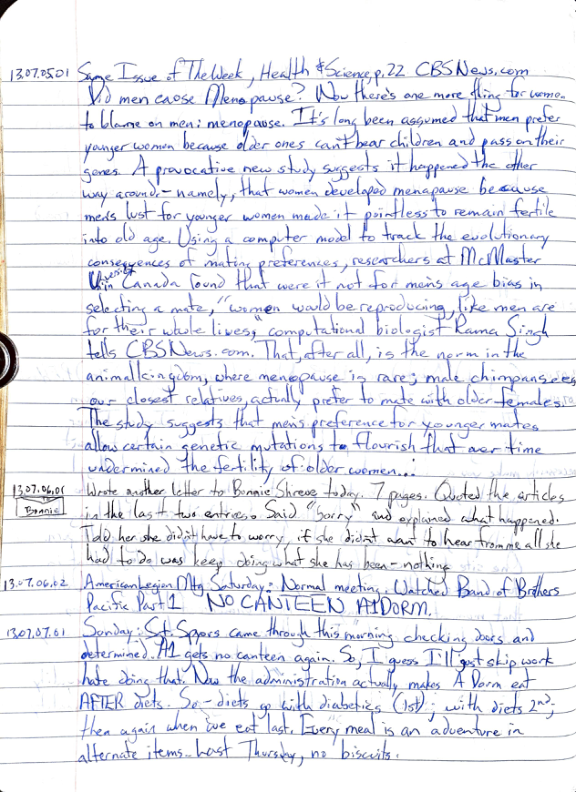 13.07.05.01 Same Issue of The Week, Health & Science, p.22 CBSNews.com
Did men cause Menopause? Now there's one more thing for women
to blame on men: menopause. It's long been assumed that men prefer
younger women because older ones can't bear children and pass on their
genes. A provocative new study suggests it happened the other
way around - namely, that women developed menopause because
men's lust for younger women made it pointless to remain fertile
into old age. Using a computer model to track the evolutionary
consequences of mating preferences, researchers at McMaster
University in Canada found that were it not for men's age bias in
selecting a mate, "women would be reproducing, like men are
for their whole lives," computational biologist Rama Singh
tells CBSNews.com. That, after all, is the norm in the
animal kingdom, where menopause is rare; male chimpansees
our closest relatives, actually prefer to mate with older females.
The study suggests that men's preference for younger mates
allow certain genetic mutations to flourish that over time
undermined the fertility of older women...
13.07.06.01 Wrote another letter to Bonnie Shreve today. 7 pages. Quoted the articles
Bonnie in the last two entries. Said "Sorry" and explained what happened.
Told her she didn't have to worry, if she didn't want to hear from me all she
had to do was keep doing what she has been - nothing
13.07.06.02 American Legion Mtg Saturday: Normal meeting. Watched Band of Brothers
Pacific Part 1 NO CANTEEN A1 DORM.
13.07.07.01 Sunday: Sgt. came through this morning checking doors and
determined A1 gets no canteen again. So, I guess I'll just skip work
hate doing that. Now the administration actually makes A Dorm eat
AFTER diets. So - diets go with diabetics (1st); with diets 2nd;
then again when we eat last. Every meal is an adventure in
alternate items. Last Thursday, no biscuits.